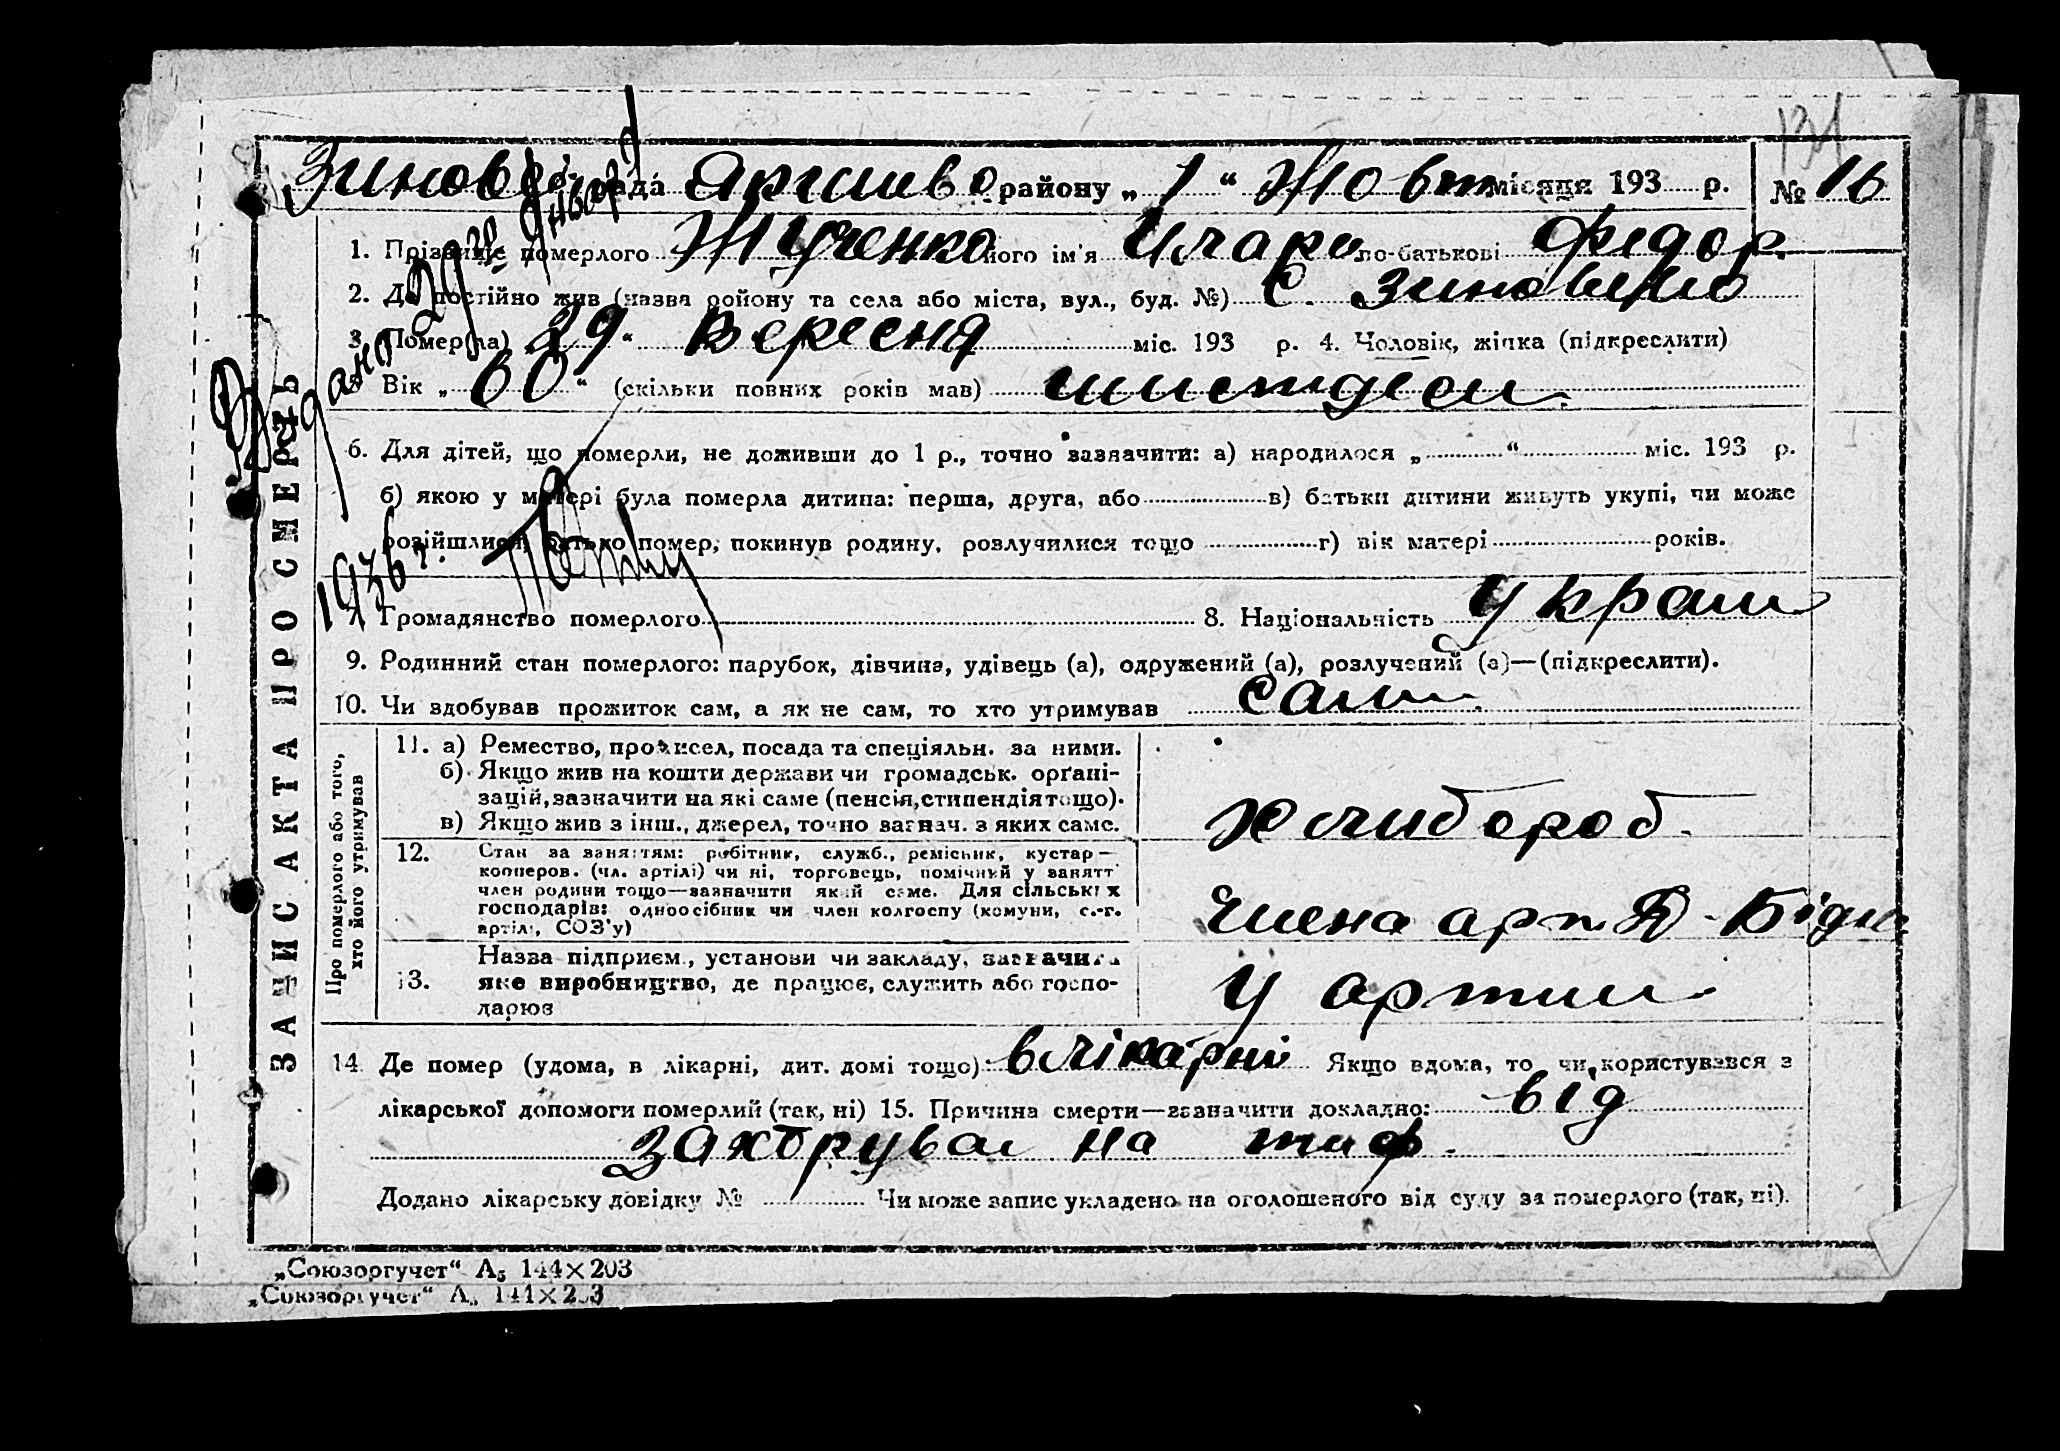 131
Зинов рада района „ 1 “ Жовт місяця 193 р. № 16
1. Прізвище померлого Жученко його ім'я по-батькові Федор.
2. Де постійно жив (назва району та села або міста, вул., буд. №) С.
3. Помер(ла) 29 „ Вересня міс. 193 р. 4. Чоловік, жінка (підкреслити)
5. Вік „ 60 “ (скільки повних років мав) шистдесят.
6. Для дітей, що померли, не доживши до 1 р., точно зазначити: а) народилося „ “ міс. 193 р.
б) якою у матері була померла дитина: перша, друга, або в) батьки дитини живуть укупі, чи може
розійшлися, батько помер, покинув родину, розлучилися тощо г) вік матері років.
7. Громадянство померлого 8. Національність Украин
9. Родинний стан померлого: парубок, дівчина, удівець (а), одружений (а), розлучений (а)—(підкреслити).
10. Чи здобував прожиток сам, а як не сам, то хто утримував сам
Про померлого або того,
хто його утримував
11. а) Ремество, промисел, посада та спеціяльн. за ними.
б) Якщо жив на кошти держави чи громадськ. орґані-
зацій, зазначити на які саме (пенсія, стипендія тощо).
в) Якщо жив з інш., джерел, точно зазнач. з яких саме.
хлибороб
12. Стан за заняттям: робітник, служб., ремісник, кустар—
кооперов. (чл. артілі) чи ні, торговець, помічний у занятт
член родини тощо—зазначити який саме. Для сільських
господарів: одноосібник чи член колгоспу (комуни, с.-г.
артілі, СОЗ'у)
члена арт. Д-Бідн
13. Назва підприєм., установи чи закладу, зазначити
яке виробництво, де працює, служить або госпо-
дарює
у артили
14. Де помер (удома, в лікарні, дит. домі тощо): в лікарні Якщо вдома, то чи користувався з
лікарської допомоги померлий (так, ні) 15. Причина смерти—зазначити докладно: від
захорував на тиф.
Додано лікарську довідку № Чи може запис укладено на оголошеного від суду за померлого (так, ні).
ЗАПИС АКТА ПРО СМЕРТЬ
Видано 29го Января
1936 г.
„Союзоргучет“ А₅ 144×203
„Союзоргучет“ А₅ 144×203